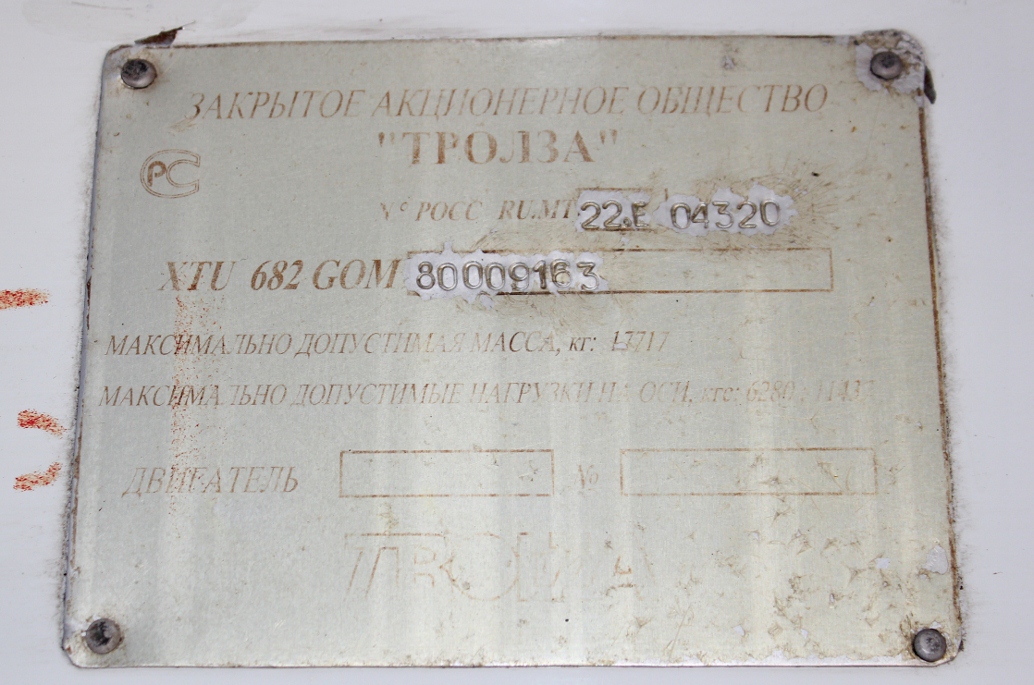 ЗАКРЫТОЕ АКЦИОНЕРНОЕ ОБЩЕСТВО
"ТРОЛЗА"
РС
№ РОСС RU.MT 22.E 04320
XTU 682 GOM 80009163
МАКСИМАЛЬНО ДОПУСТИМАЯ МАССА, кг: 13717
МАКСИМАЛЬНО ДОПУСТИМЫЕ НАГРУЗКИ НА ОСИ, кгс: 6280
ДВИГАТЕЛЬ №
TROLZA